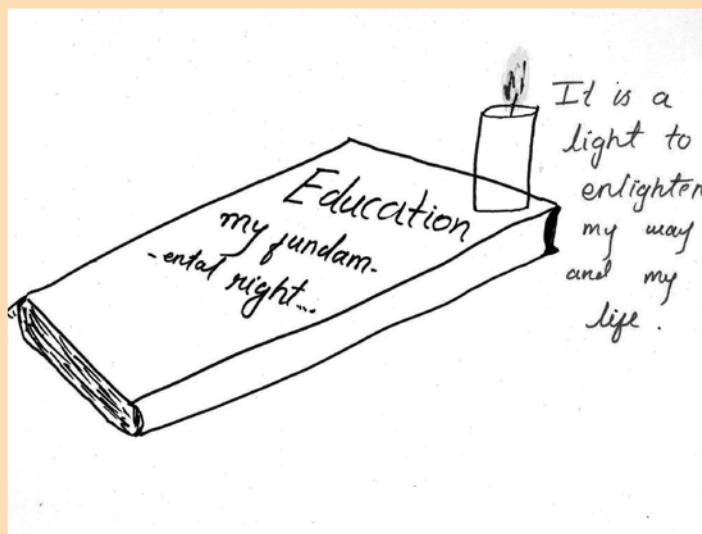 Education
my fundam-
-ental right...
It is a
light to
enlighten
my way
and my
life.